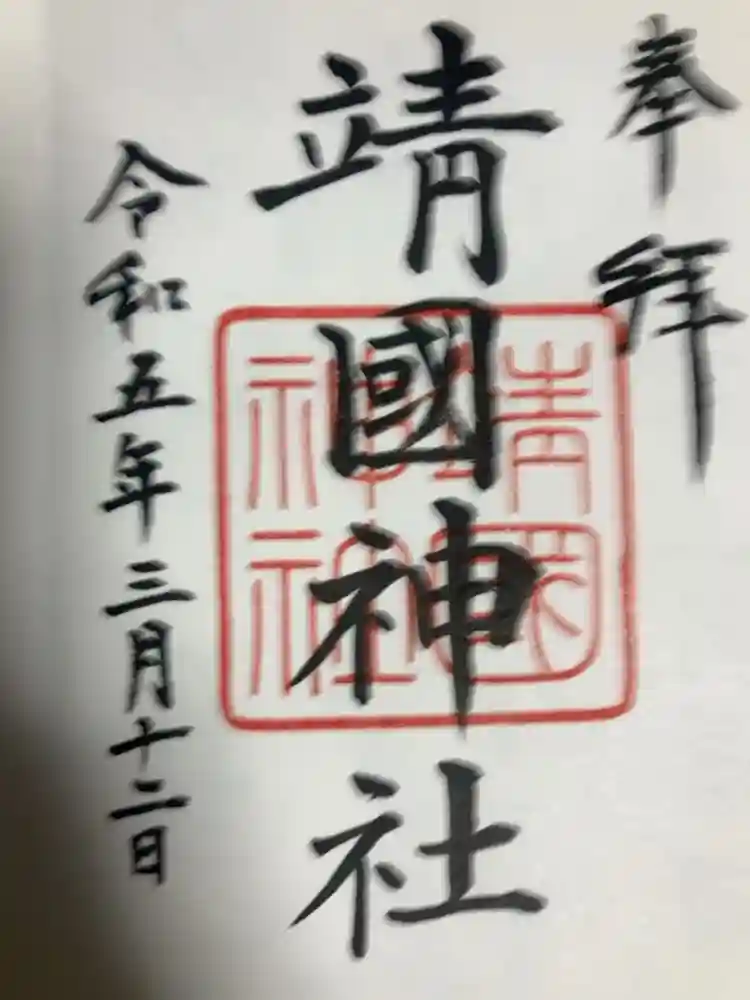 奉拝
靖國神社
靖國
神社
令和五年三月十二日